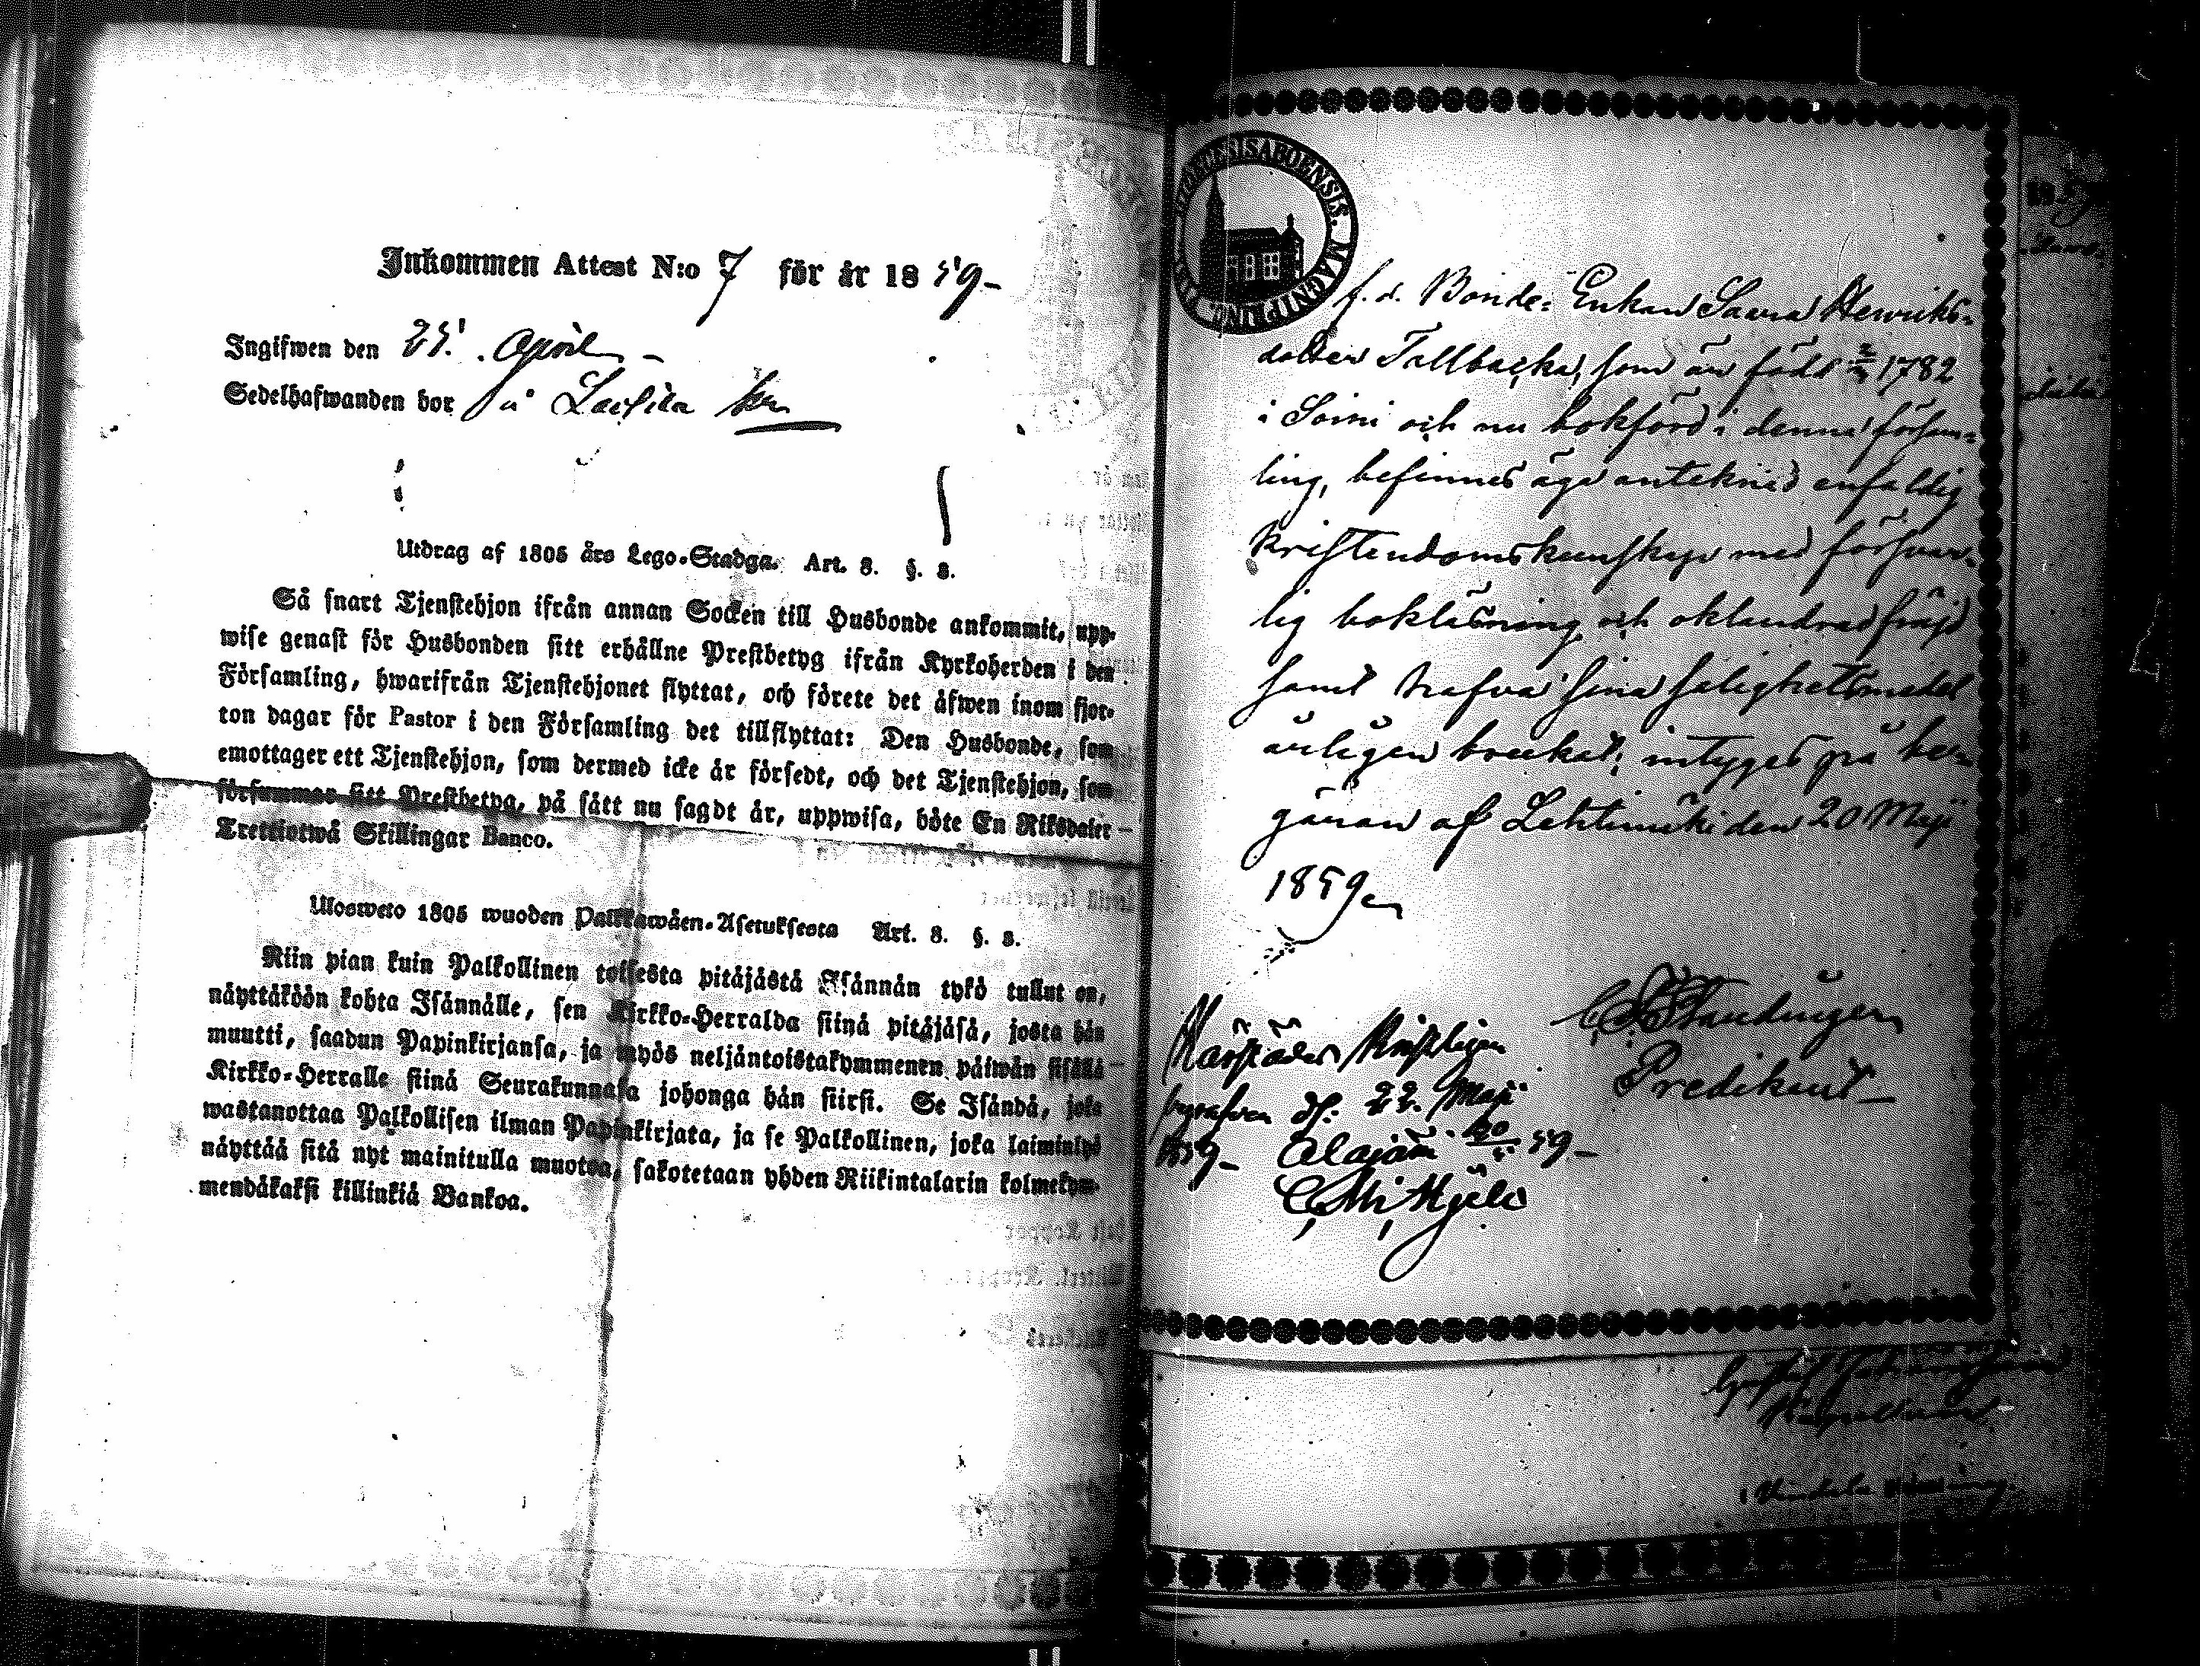 Inkommen Attest N:o 7 för år 1859
Ingifwen den 25. April
Sedelhafwanden bor på
Utdrag af 1805 års Lego-Stadga. Art. 8. §. 3.
Så snart Tjenstehjon ifrån annan Socken till Husbonde ankommit, upp-
wise genast för Husbonden sitt erhållne Prestbetyg ifrån Kyrkoherden i den
Församling, hwarifrån Tjenstehjonet flyttat, och förete det åfwen inom fjor-
ton dagar för Pastor i den Församling det tillflyttat: Den Husbonde, som
emottager ett Tjenstehjon, som dermed icke är försedt, och det Tjenstehjon, som
försummar sitt Prestbetyg, på sätt nu sagdt är, uppwisa, böte En Riksdaler
Trettiotwå Skillingar Banco.
Ulosweto 1805 wuoden Palkkawäen-Asetuksesta Art. 8. §. 3.
Niin pian kuin Palkollinen toisesta pitäjästä Isännän tykö tullut on,
näyttäköön kohta Isännälle, sen Kirkko-Herralda siinä pitäjäsä, josta hän
muutti, saadun Papinkirjansa, ja myös neljäntoistakymmenen päiwän sisällä
Kirkko-Herralle siinä Seurakunnasa johonga hän siirsi. Se Isändä, joka
wastanottaa Palkollisen ilman Papinkirjata, ja se Palkollinen, joka laiminlyö
näyttää sitä nyt mainitulla muotoa, sakotetaan yhden Riikintalarin kolmekym-
mendäkaksi killinkiä Bankoa.
ABOENSIS. MAGNI PRINC.
f. d. Bonde-Enkan Saara Henriks-
dotter Tallbacka, som är född 1782
i Soini och nu bokförd i denna försam-
ling, befinnes äga antecknad enfaldig
kristendomskunskap med försvar-
lig bokläsning och oklandrad frejd
samt hafva sina salighetsmedel
årligen brukat; intygas på be-
gäran af Lehtimäki den 20 Maji
1859
Predikant
22. Maji
1859 Alajärvi 59